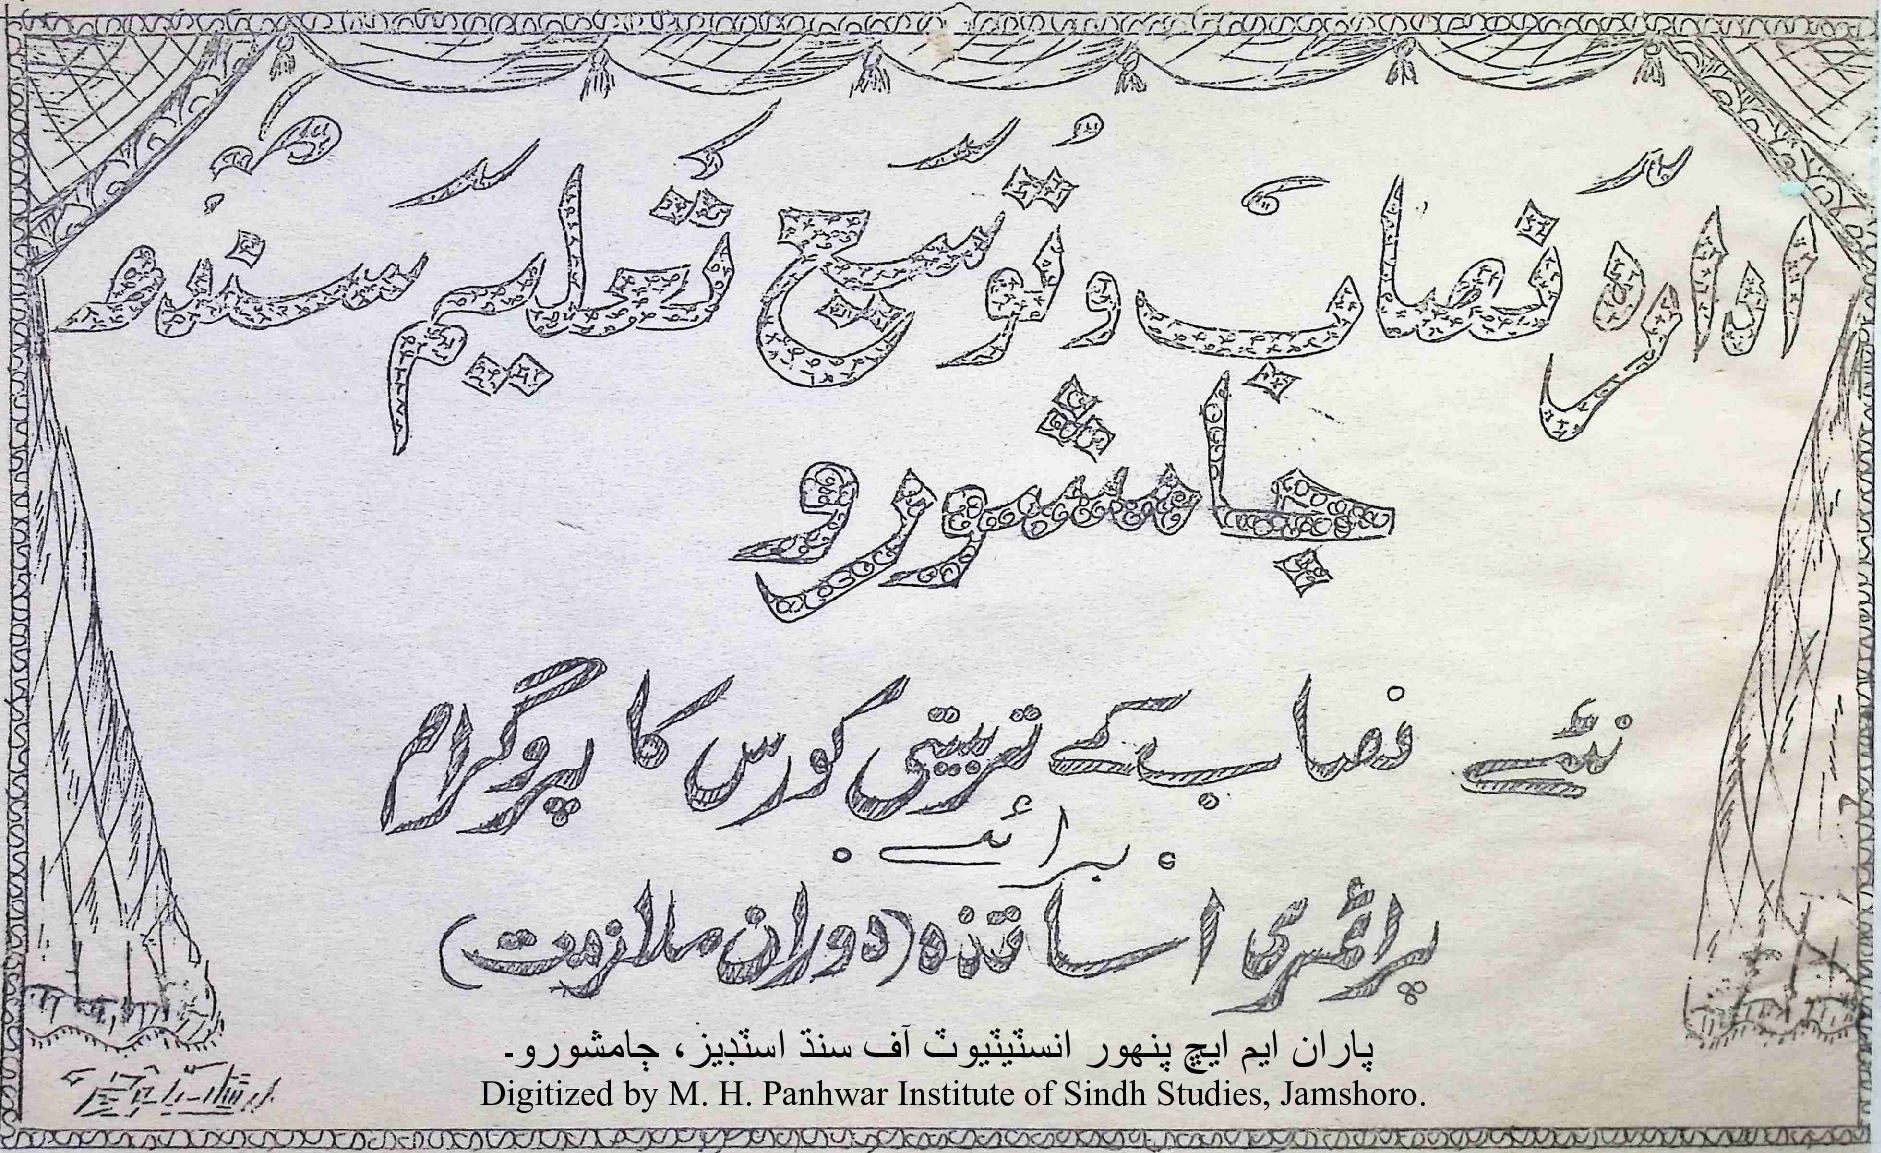 ادارہ نصاب و توسیع تعلیم سندھ
ڄامشورو
نئے نصاب کے تربیتی کورس کا پروگرام
برائے
پرائمری اساتذہ (دوران ملازمت)
پاران ايم ايڇ پنهور انسٽيٽيوٽ آف سنڌ اسٽڊيز، ڄامشورو۔
Digitized by M. H. Panhwar Institute of Sindh Studies, Jamshoro.